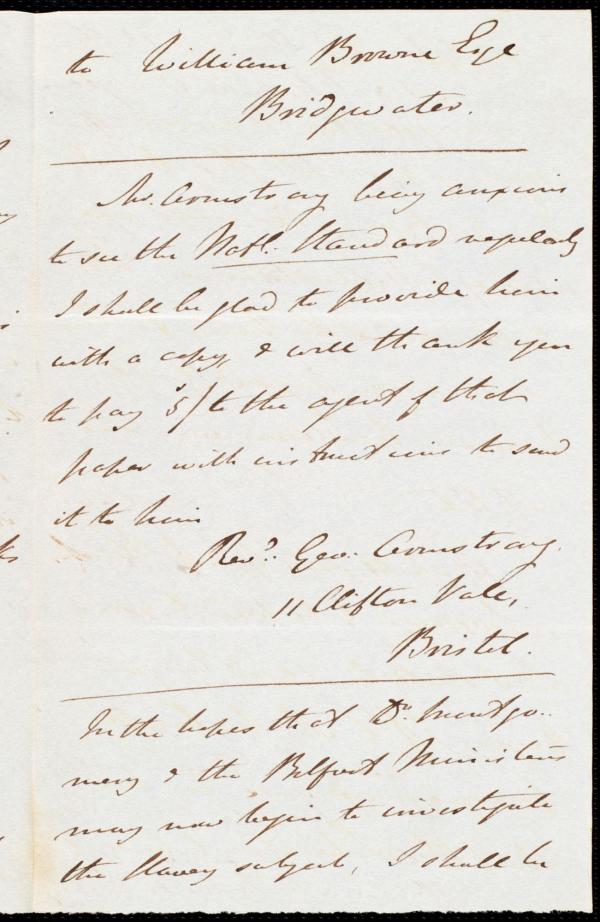 to William Browne Esqe
Bridgwater.
Mr. Armstrong being anxious
to see the Natl. Standard regularly
I shall be glad to provide him
with a copy, & will thank you
to pay 5/ to the agent of that
paper with instructions to send
it to him
Revd. Geo. Armstrong.
11 Clifton Vale,
Bristol.
In the hopes that Dr. Montgo-
mery & the Belfast Ministers
may now begin to investigate
the slavery subject, I shall be